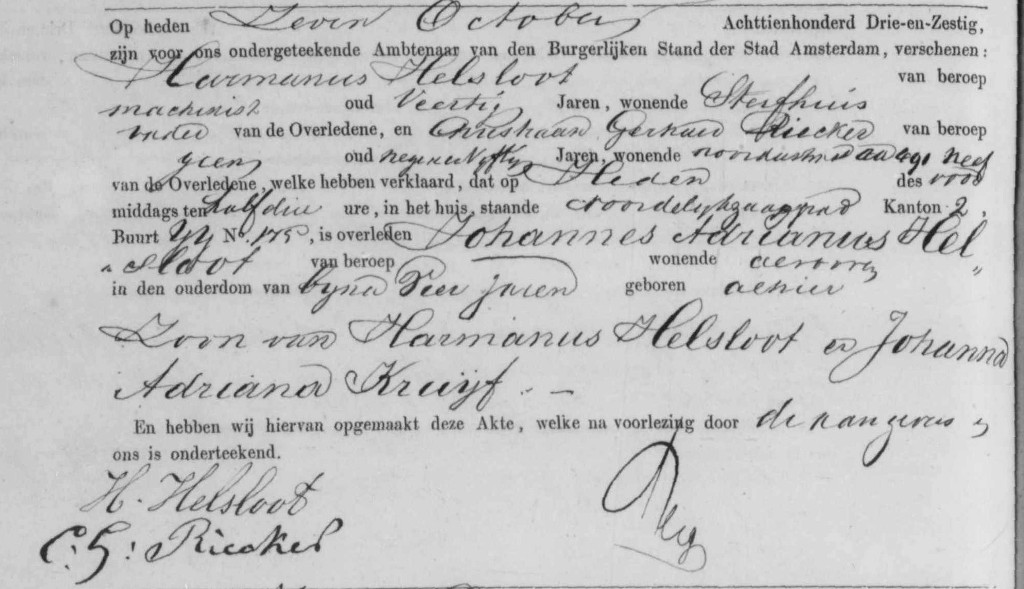 Op heden Zeven October Achttienhonderd Drie-en-Zestig,
zijn voor ons ondergeteekende Ambtenaar van den Burgerlijken Stand der Stad Amsterdam, verschenen:
Harmanus Helsloot van beroep
machinist oud Veertig Jaren, wonende Sterfhuis
vader van de Overledene, en Christiaan Gerhard Riecker van beroep
geen oud negenenvyftig Jaren, wonende neef
van de Overledene, welke hebben verklaard, dat op Heden des voor
middags ten half drie ure, in het huis, staande Noordelykzaagpad Kanton 2,
Buurt YY No. 175, is overleden Johannes Adrianus Hel
„ sloot van beroep — wonende aldaar
in den ouderdom van byna Vier jaren geboren alhier
Zoon van Harmanus Helsloot en Johanna
Adriana Kruijf. –
En hebben wij hiervan opgemaakt deze Akte, welke na voorlezing door de aangevers en
ons is onderteekend.
H. Helsloot
C: G: Riecker